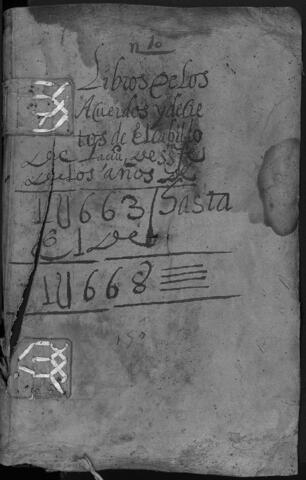 n 10
Libros de los
Acuerdos y decre
tos de el cabildo
de
de los años de
1U663 hasta
el de
1U668
150